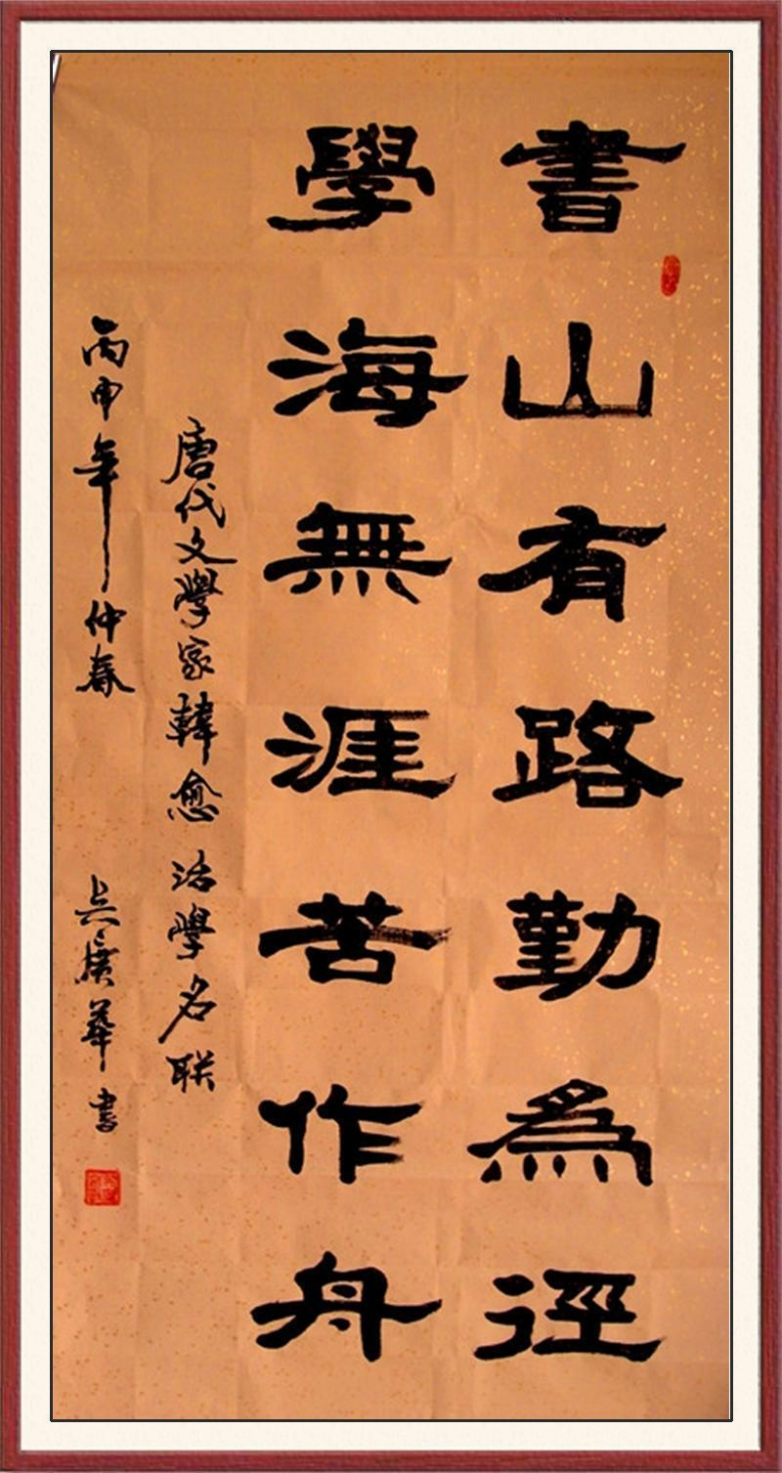 書山有路勤爲徑
學海無涯苦作舟
唐代文學家韓愈治學名联
丙申年仲春 華書